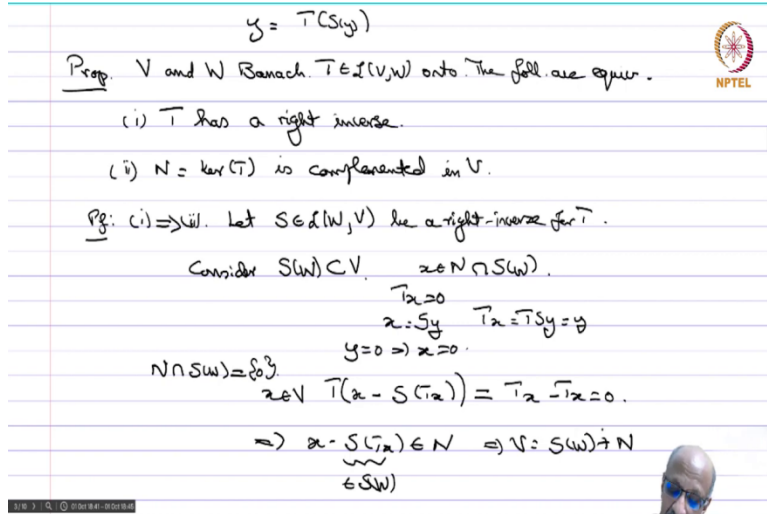 y = T(S(y))
NPTEL
Prop. V and W Banach. T∈L(V,W) onto. The foll. are equiv.
(i) T has a right inverse.
(ii) N = ker(T) is complemented in V.
Pf: (i)=>(ii). Let S∈L(W,V) be a right-inverse for T.
Consider S(W)⊂V. x∈N∩S(W).
Tx=0
x=Sy Tx=TSy=y
y=0 => x=0.
N∩S(W)={0}.
x∈V T(x-S(Tx)) = Tx-Tx=0.
=> x-S(Tx)∈N => V= S(W)+N
∈S(W)
3/10 01 Oct 18:41 - 01 Oct 18:48